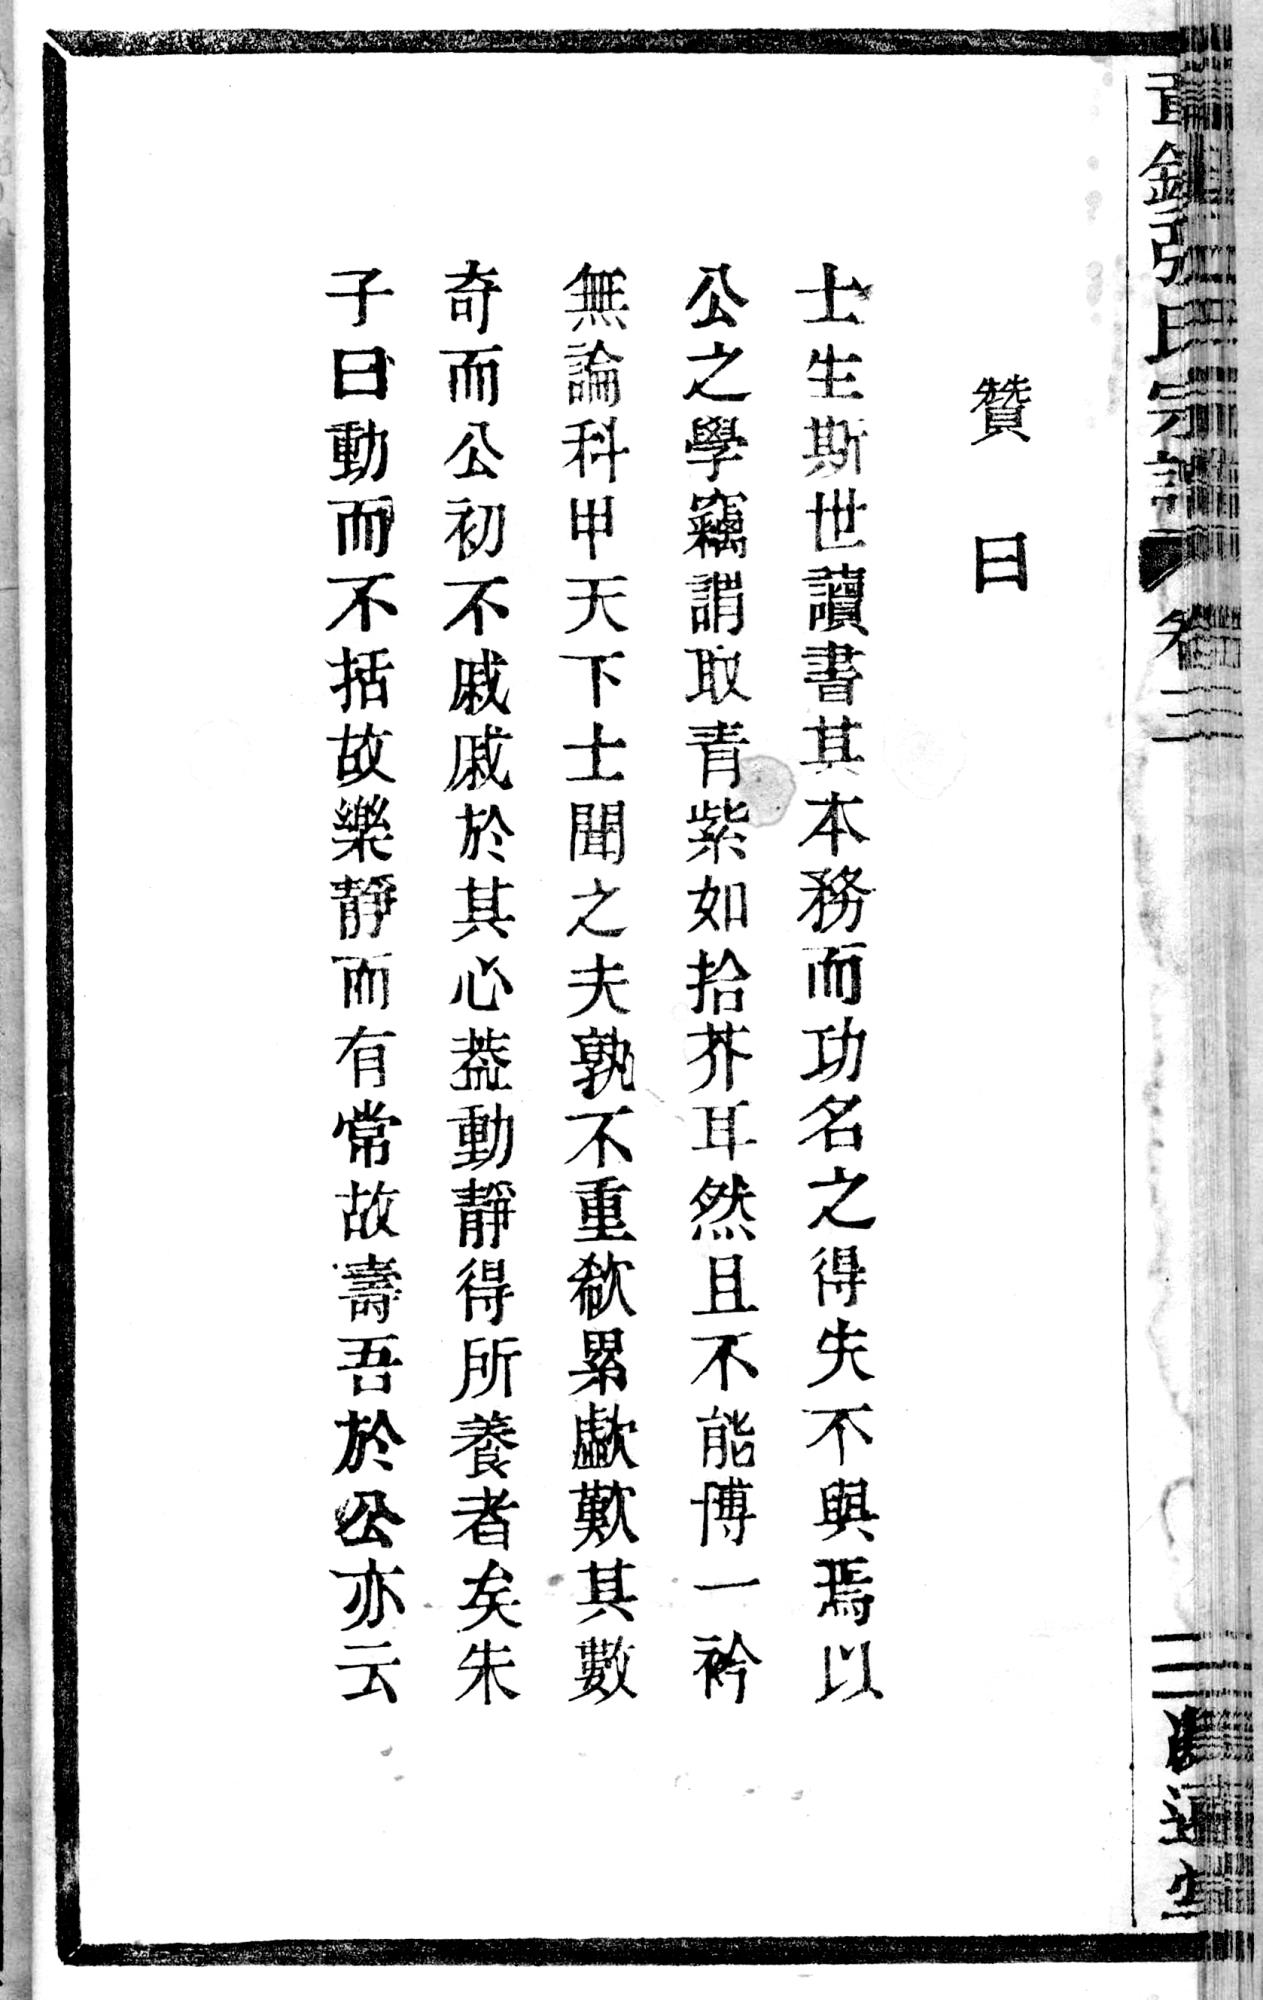 張氏宗譜
卷二
二
贊曰
士生斯世讀書其本務而功名之得失不與焉以
公之學竊謂取青紫如拾芥耳然且不能博一衿
無論科甲天下士聞之夫孰不重欷累歔歎其數
奇而公初不戚戚於其心葢動靜得所養者矣朱
子曰動而不括故樂靜而有常故壽吾於公亦云